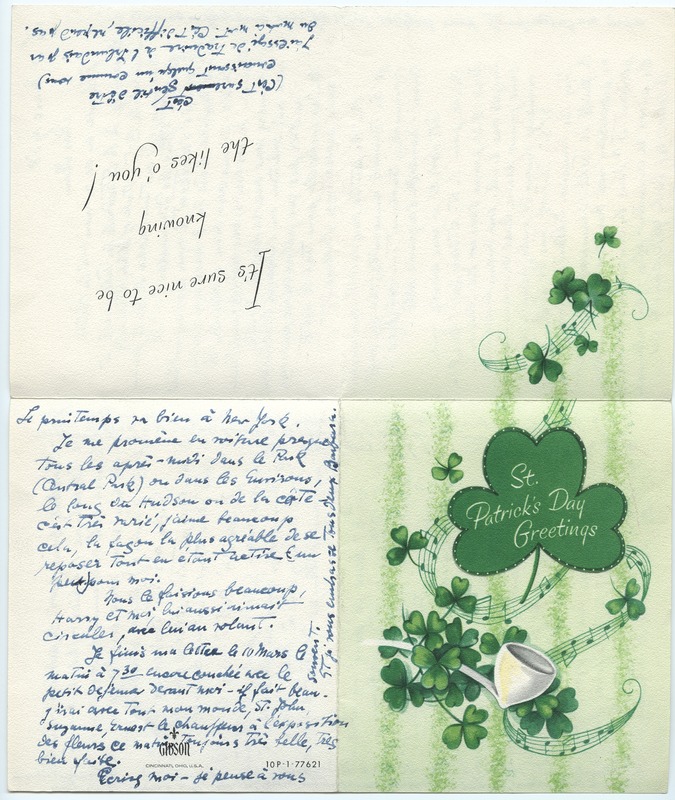 (C'est
gentil d'être
connaissant quelqu'un comme vous)
J'ai essayé de traduire de l'Irlandais pas
du mot à mot. C'est difficile, répond pas.
It's sure nice to be
knowing
the likes o' you!
St.
Patrick's Day
Greetings
Le printemps va bien à New York.
Je me promène en voiture presque
tous les après-midi dans le Park
(Central Park) ou dans les Environs,
le long du Hudson ou de la côte
c'est très joli, j'aime beaucoup
cela, la façon la plus agréable de se
reposer tout en étant active un
peu pour moi.
Nous le faisions beaucoup,
Harry et moi, lui aussi aimait
circuler, avec lui au volant.
Je finis ma lettre le 10 Mars le
matin à 7 30 encore couchée avec le
petit déjeuner devant moi - il fait beau -
j'irai avec tout mon monde, St. John,
Suzanne, Ernest le chauffeur à l'exposition
des fleurs ce matin toujours très belle, très
bien faite.
Ecrivez moi - je pense à vous
souvent.
Et je vous embrasse tous deux
Gibson
CINCINNATI, OHIO, U.S.A.
10P-1-77621